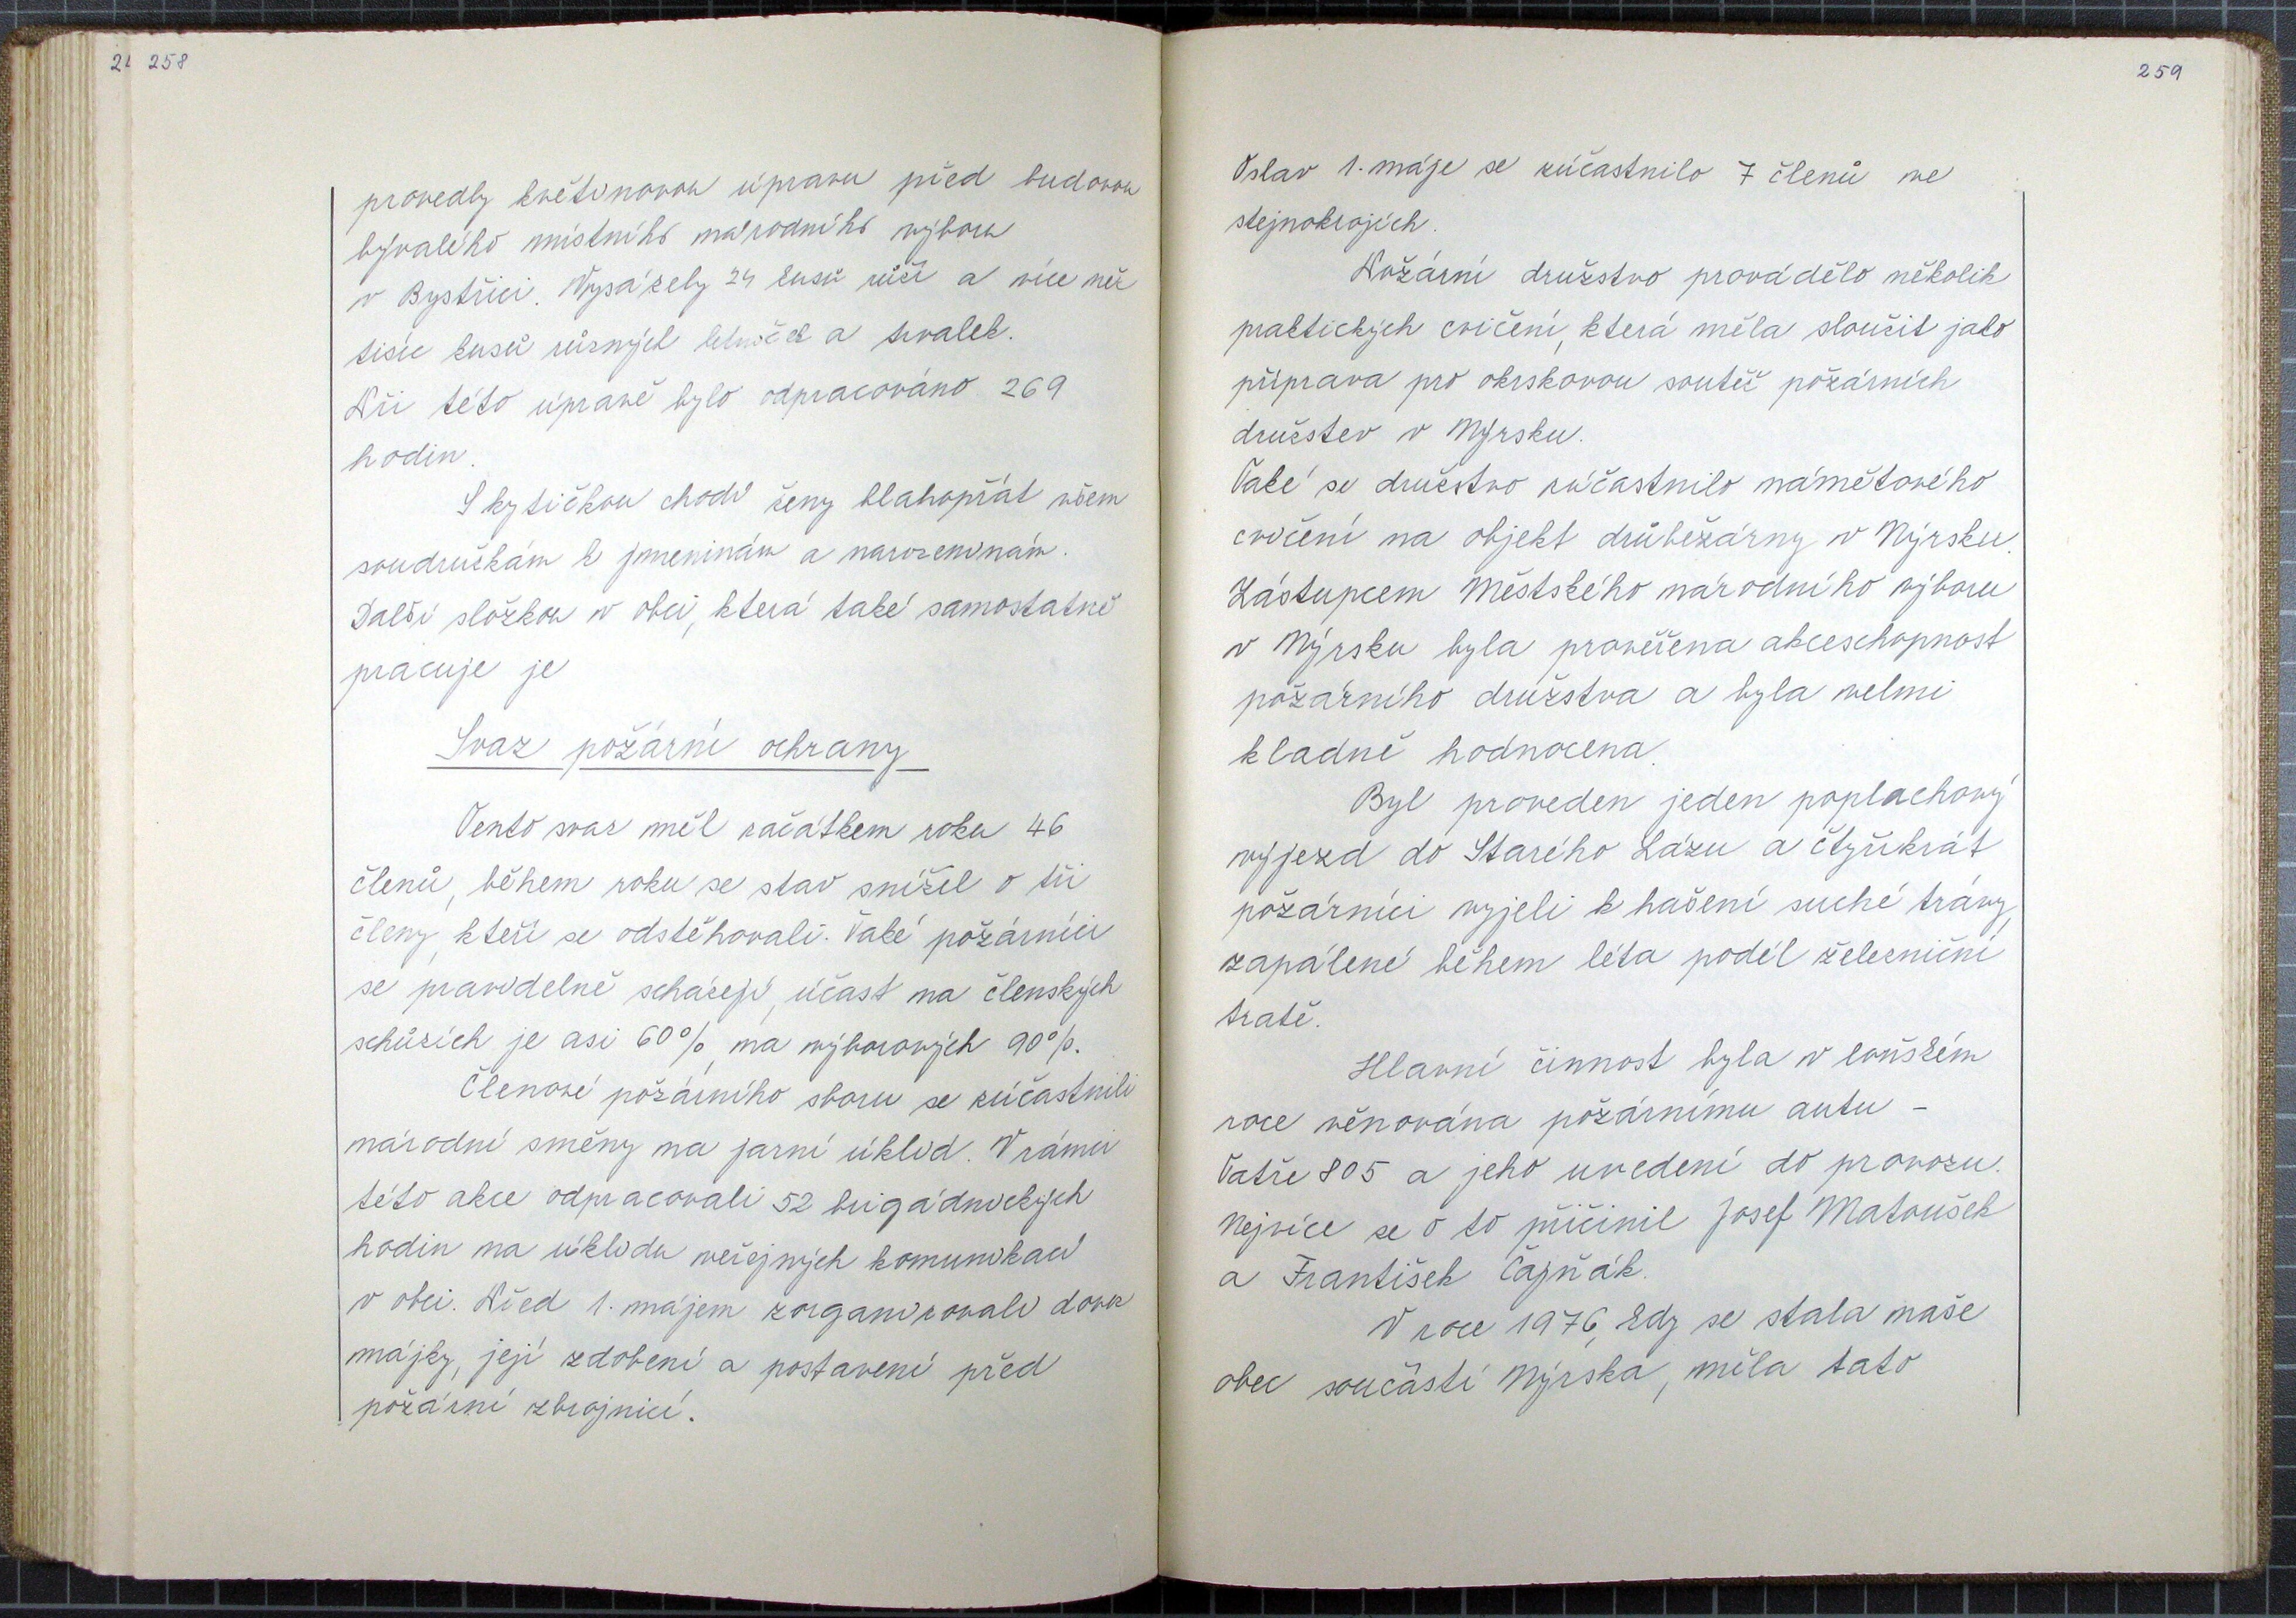 258
provedly květinovou úpravu před budovou
bývalého místního národního výboru
v Bystřici. Vysázely 24 kusů růží a více než
tisíc kusů různých letniček a trvalek.
Při této úpravě bylo odpracováno 269
hodin.
S kytičkou chodí ženy blahopřát všem
soudružkám k jmeninám a narozeninám.
Další složkou v obci, která také samostatně
pracuje je
Svaz požární ochrany
Tento svaz měl začátkem roku 46
členů, během roku se stav snížil o tři
členy, kteří se odstěhovali. Také požárníci
se pravidelně scházejí, účast na členských
schůzích je asi 60%, na výborových 90%.
Členové požárního sboru se zúčastnili
národní směny na jarní úklid. V rámci
této akce odpracovali 52 brigádnických
hodin na úklidu veřejných komunikací
v obci. Před 1. májem zorganizovali dovoz
májky, její zdobení a postavení před
požární zbrojnicí.
259
Oslav 1. máje se zúčastnilo 7 členů ve
stejnokrojích.
Požární družstvo provádělo několik
praktických cvičení, která měla sloužit jako
příprava pro okrskovou soutěž požárních
družstev v Nýrsku.
Také se družstvo zúčastnilo námětového
cvičení na objekt drůbežárny v Nýrsku.
Zástupcem Městského národního výboru
v Nýrsku byla prověřena akceschopnost
požárního družstva a byla velmi
kladně hodnocena.
Byl proveden jeden poplachový
výjezd do Starého Lázu a čtyřikrát
požárníci vyjeli k hašení suché trávy,
zapálené během léta podél železniční
tratě.
Hlavní činnost byla v loňském
roce věnována požárnímu autu -
Tatře 805 a jeho uvedení do provozu.
Nejvíce se o to přičinil Josef Matoušek
a František Čajňák.
V roce 1976, kdy se stala naše
obec součástí Nýrska, měla tato